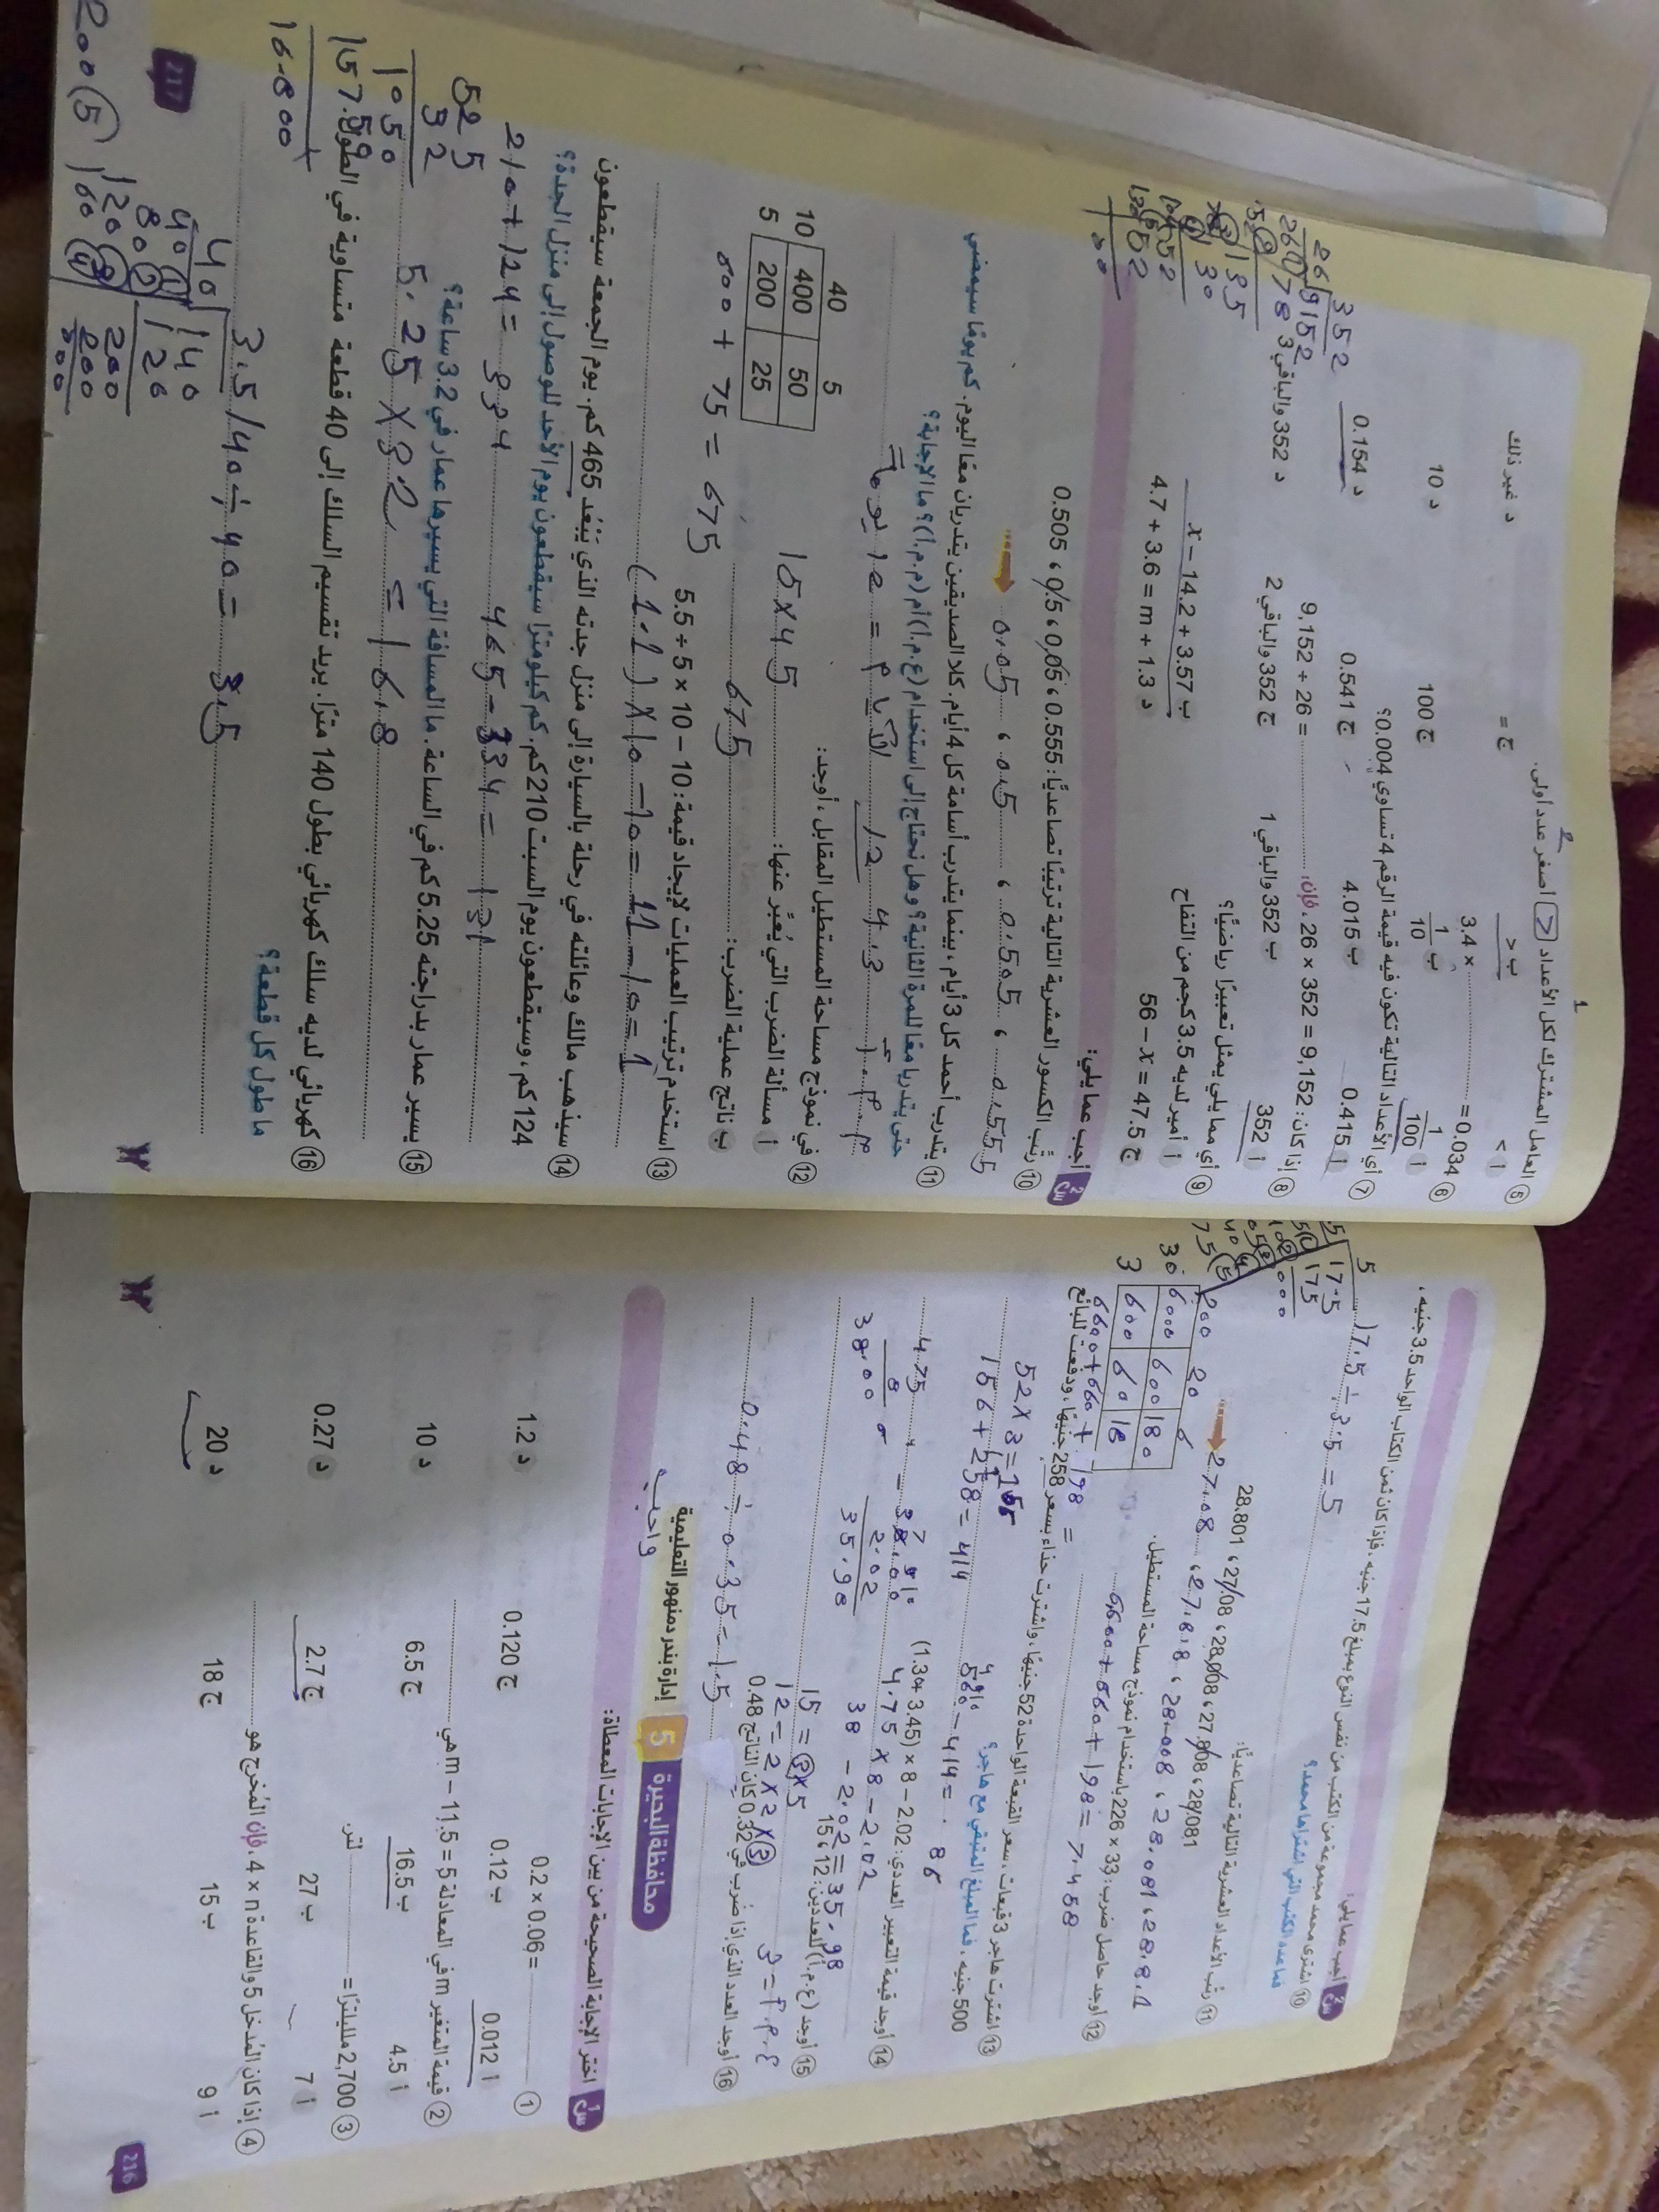 س2 أجب عما يلي:
10 اشترى محمد مجموعة من الكتب من نفس النوع بمبلغ 17.5 جنيه، فإذا كان ثمن الكتاب الواحد 3.5 جنيه،
فما عدد الكتب التي اشتراها محمد؟
17.5 ÷ 3.5 = 5
11 رتب الأعداد العشرية التالية تصاعديًا:
28.081 ، 27.808 ، 28.008 ، 27.08 ، 28.801
27.08 ، 27.808 ، 28.008 ، 28.081 ، 28.801
12 أوجد حاصل ضرب: 33 × 226 باستخدام نموذج مساحة المستطيل.
200 20 6
30 6000 600 180
3 600 60 18
6600 + 660 + 198 =
6600 + 660 + 198 = 7.458
13 اشترت هاجر 3 قبعات، سعر القبعة الواحدة 52 جنيهًا، واشترت حذاء بسعر 258 جنيهًا، ودفعت للبائع
500 جنيه، فما المبلغ المتبقي مع هاجر؟
52 × 3 = 156
156 + 258 = 414
500 – 414 = 86
14 أوجد قيمة التعبير العددي: (1.3 + 3.45) × 8 – 2.02
4.75 × 8 – 2.02
38 – 2.02 = 35.98
15 أوجد (ع.م.أ) للعددين: 12 ، 15
15 = 3 × 5
12 = 2 × 2 × 3
ع.م.أ = 3
16 أوجد العدد الذي إذا ضُرب في 0.32 كان الناتج 0.48
0.48 ÷ 0.35 = 1.5
محافظة البحيرة 5 إدارة بندر دمنهور التعليمية
واجب
س1 اختر الإجابة الصحيحة من بين الإجابات المعطاة:
1 0.2 × 0.06 =
أ 0.012 ب 0.12 ج 0.120 د 1.2
2 قيمة المتغير m في المعادلة m – 11.5 = 5 هي
أ 4.5 ب 16.5 ج 6.5 د 10
3 2,700 ملليلترًا = لتر.
أ 7 ب 27 ج 2.7 د 0.27
4 إذا كان المُدخل 5 والقاعدة 4 × n، فإن المُخرج هو
أ 9 ب 15 ج 18 د 20
216
5 العامل المشترك لكل الأعداد > أصغر عدد أولي.
أ < ب > ج = د غير ذلك
6 3.4 × = 0.034
أ 1/100 ب 1/10 ج 100 د 10
7 أي الأعداد التالية تكون فيه قيمة الرقم 4 تساوي 0.004؟
أ 0.415 ب 4.015 ج 0.541 د 0.154
8 إذا كان: 9,152 = 352 × 26، فإن: 9,152 ÷ 26 =
أ 352 ب 352 والباقي 1 ج 352 والباقي 2 د 352 والباقي 3
9 أي مما يلي يمثل تعبيرًا رياضيًا؟
أ أمير لديه 3.5 كجم من التفاح ب x – 14.2 + 3.57
ج 56 – x = 47.5 د 4.7 + 3.6 = m + 1.3
س2 أجب عما يلي:
10 رتب الكسور العشرية التالية ترتيبًا تصاعديًا: 0.555 ، 0.05 ، 0.5 ، 0.505
0.05 ، 0.5 ، 0.505 ، 0.555
11 يتدرب أحمد كل 3 أيام، بينما يتدرب أسامة كل 4 أيام. كلا الصديقين يتدربان معًا اليوم. كم يومًا سيمضي
حتى يتدربا معًا للمرة الثانية؟ وهل نحتاج إلى استخدام (ع.م.أ) أم (م.م.أ)؟ ما الإجابة؟
12 في نموذج مساحة المستطيل المقابل، أوجد:
40 5
10 400 50
5 200 25
أ مسألة الضرب التي يُعبَّر عنها: 15 × 45
ب ناتج عملية الضرب: 675
600 + 75 = 675
13 استخدم ترتيب العمليات لإيجاد قيمة: 10 – 10 × 5 ÷ 5.5
(1.1) × 10 – 10 = 11 – 10 = 1
14 سيذهب مالك وعائلته في رحلة بالسيارة إلى منزل جدته الذي يَبْعُد 465 كم. يوم الجمعة سيقطعون
124 كم، وسيقطعون يوم السبت 210 كم. كم كيلومترًا سيقطعون يوم الأحد للوصول إلى منزل الجدة؟
210 + 124 = 334
465 – 334 = 131
15 يسير عمار بدراجته 5.25 كم في الساعة. ما المسافة التي يسيرها عمار في 3.2 ساعة؟
5.25 × 3.2 = 16.8
16 كهربائي لديه سلك كهربائي بطول 140 مترًا. يريد تقسيم السلك إلى 40 قطعة متساوية في الطول.
ما طول كل قطعة؟
217